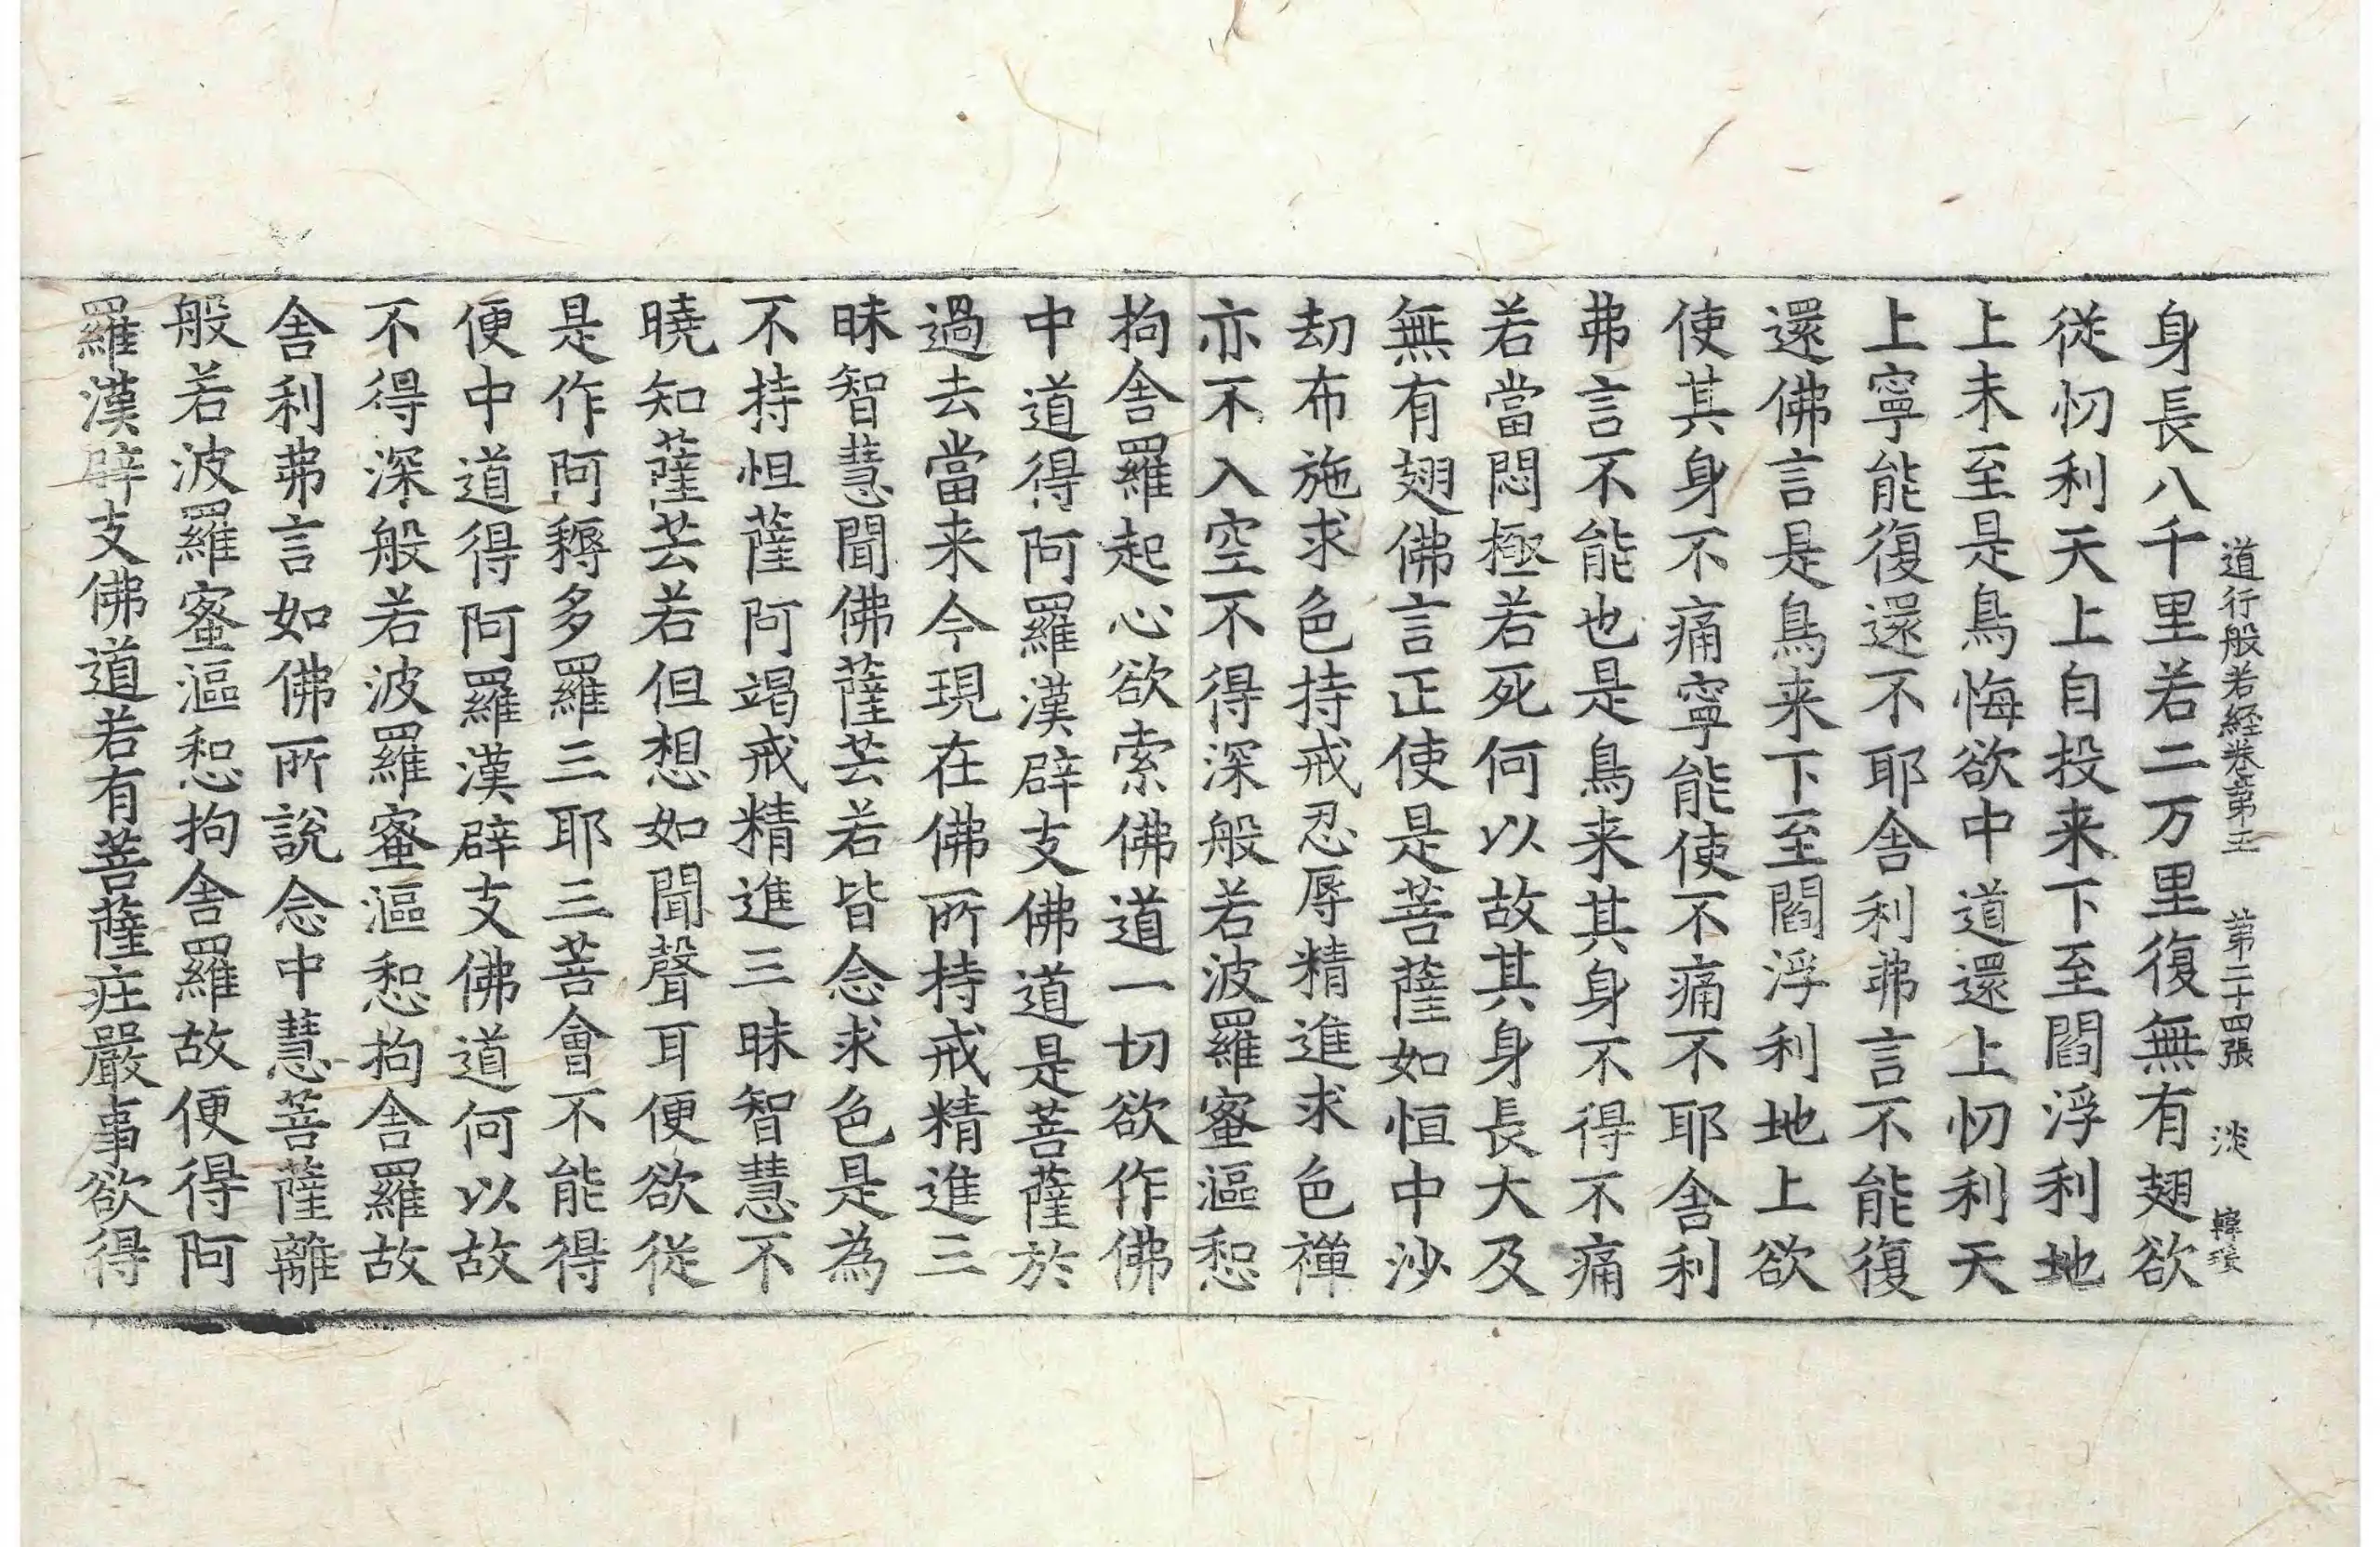 道行般若経卷第五 第二十四張 淡 韓
身長八千里若二万里復無有翅欲
從忉利天上自投来下至閻浮利地
上未至是鳥悔欲中道還上忉利天
上寧能復還不耶舍利弗言不能復
還佛言是鳥来下至閻浮利地上欲
使其身不痛寧能使不痛不耶舍利
弗言不能也是鳥来其身不得不痛
若當悶極若死何以故其身長大及
無有翅佛言正使是菩薩如恒中沙
劫布施求色持戒忍辱精進求色禪
亦不入空不得深般若波羅蜜漚惒
拘舍羅起心欲索佛道一切欲作佛
中道得阿羅漢辟支佛道是菩薩於
過去當来今現在佛所持戒精進三
昧智慧聞佛薩芸若皆念求色是為
不持怛薩阿竭戒精進三昧智慧不
曉知薩芸若但想如聞聲耳便欲從
是作阿耨多羅三耶三菩會不能得
便中道得阿羅漢辟支佛道何以故
不得深般若波羅蜜漚惒拘舍羅故
舍利弗言如佛所說念中慧菩薩離
般若波羅蜜漚惒拘舍羅故便得阿
羅漢辟支佛道若有菩薩莊嚴事欲得